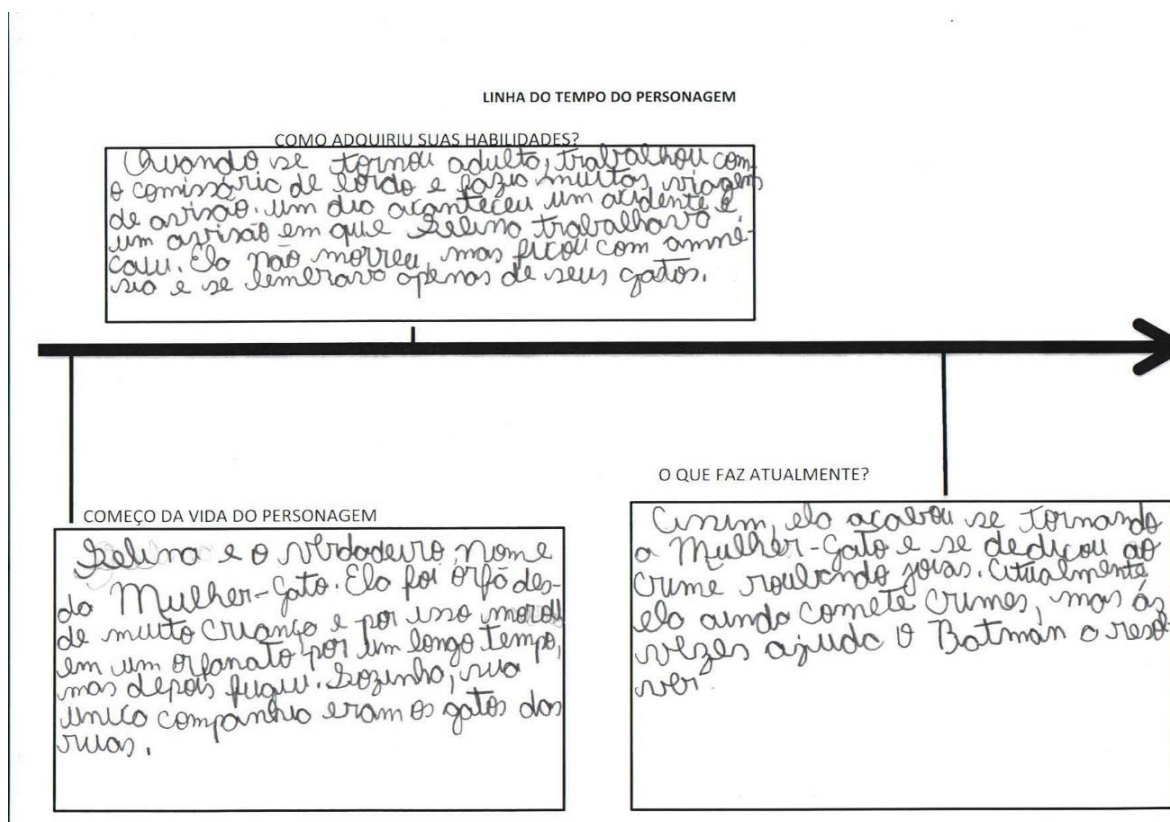 LINHA DO TEMPO DO PERSONAGEM
COMO ADQUIRIU SUAS HABILIDADES?
Quando se tornou adulta, trabalhou com
o comissária de bordo e fazia muitas viagens
de avião. um dia aconteceu um acidente e
um avião em que Selina trabalhava
caiu. Ela não morreu, mas ficou com amné-
sia e se lembrava apenas de seus gatos.
COMEÇO DA VIDA DO PERSONAGEM
Selina e o verdadeiro nome
da Mulher-Gato. Ela foi órfã des-
de muito criança e por isso morou
em um orfanato por um longo tempo,
mas depois fugiu. Sozinha, sua
unica companhia eram os gatos das
ruas.
O QUE FAZ ATUALMENTE?
Assim, ela acabou se tornando
a Mulher-Gato e se dedicou ao
crime roubando joias. Atualmente
ela ainda comete crimes, mas ás
vezes ajuda o Batman a resol-
ver.